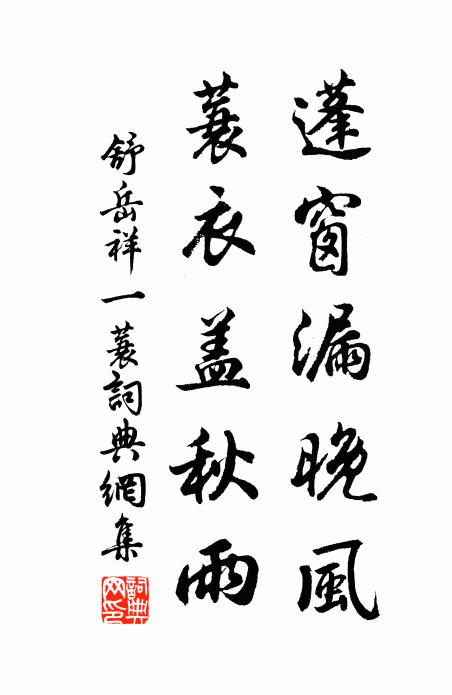 蓬窗漏晚風
蓑衣盖秋雨
舒岳祥一蓑詞典網集
詞典网印